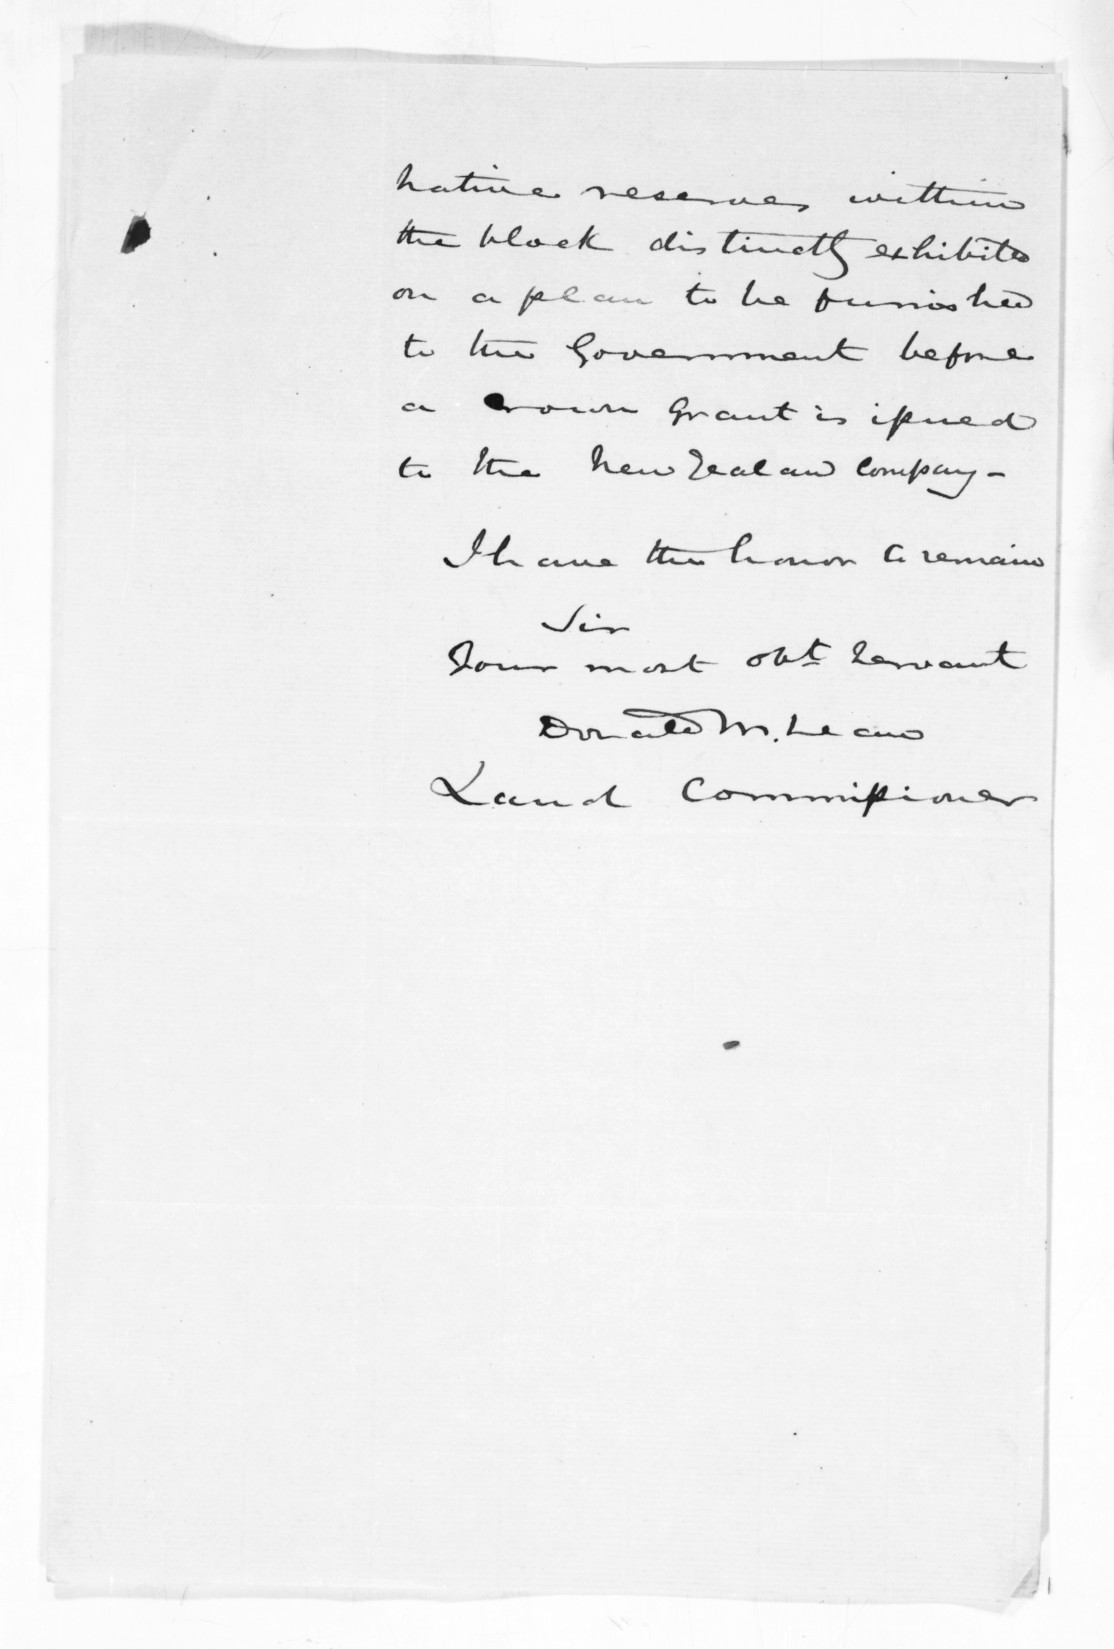 native reserves within
the block distinctly exhibited
on a plan to be furnished
to the Government before
a crown grant is issued
to the New Zealand Company -
I have the honor to remain
Sir
Your most obt servant
Donald McLean
Land Commissioner